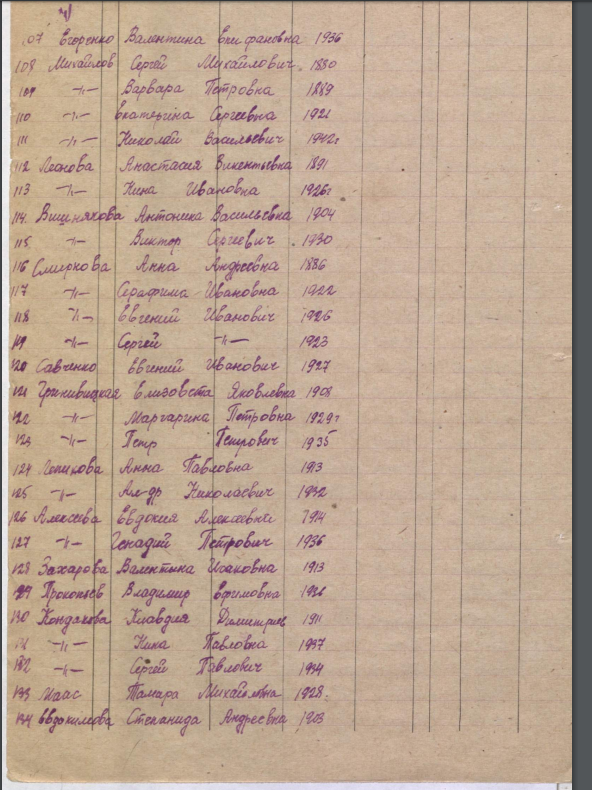 107 Егоренко Валентина Епифановна 1936
108 Михайлов Сергей Михайлович. 1880
109 -"- Варвара Петровна 1889
110 -"- Екатерина Сергеевна 1921
111 -"- Николай Васильевич 1942г
112 Леонова Анастасия Викентьевна 1891
113 -"- Нина Ивановна 1926г
114. Вишнякова Антонина Васильевна 1904
115 -"- Виктор Сергеевич. 1930
116 Смирнова Анна Андреевна 1886
117 -"- Серафима Ивановна 1922
118 -"- Евгений Иванович 1926
119 -"- Сергей -"- 1923
120 Савченко Евгений Иванович 1927
121 Гринивицкая Елизовета Яковлевна 1908
122 -"- Маргарина Петровна 1929г
123 -"- Петр Петрович 1935
124 Анна Павловна 1913
125 -"- Ал-др Николаевич 1932
126 Алексеева Евдокия Алексеевна 1914
127 -"- Генадий Петрович 1936
128 Захарова Валентина Исаковна 1913
129 Прокопьев Владимир Ефимовна
130 Кондакова Клавдия Димитриев 1911
131 -"- Нина Павловна 1937
132 -"- Сергей Павлович 1934
133 Маас Тамара Михайловна 1928.
134 Евдокимова Степанида Андреевна 1903